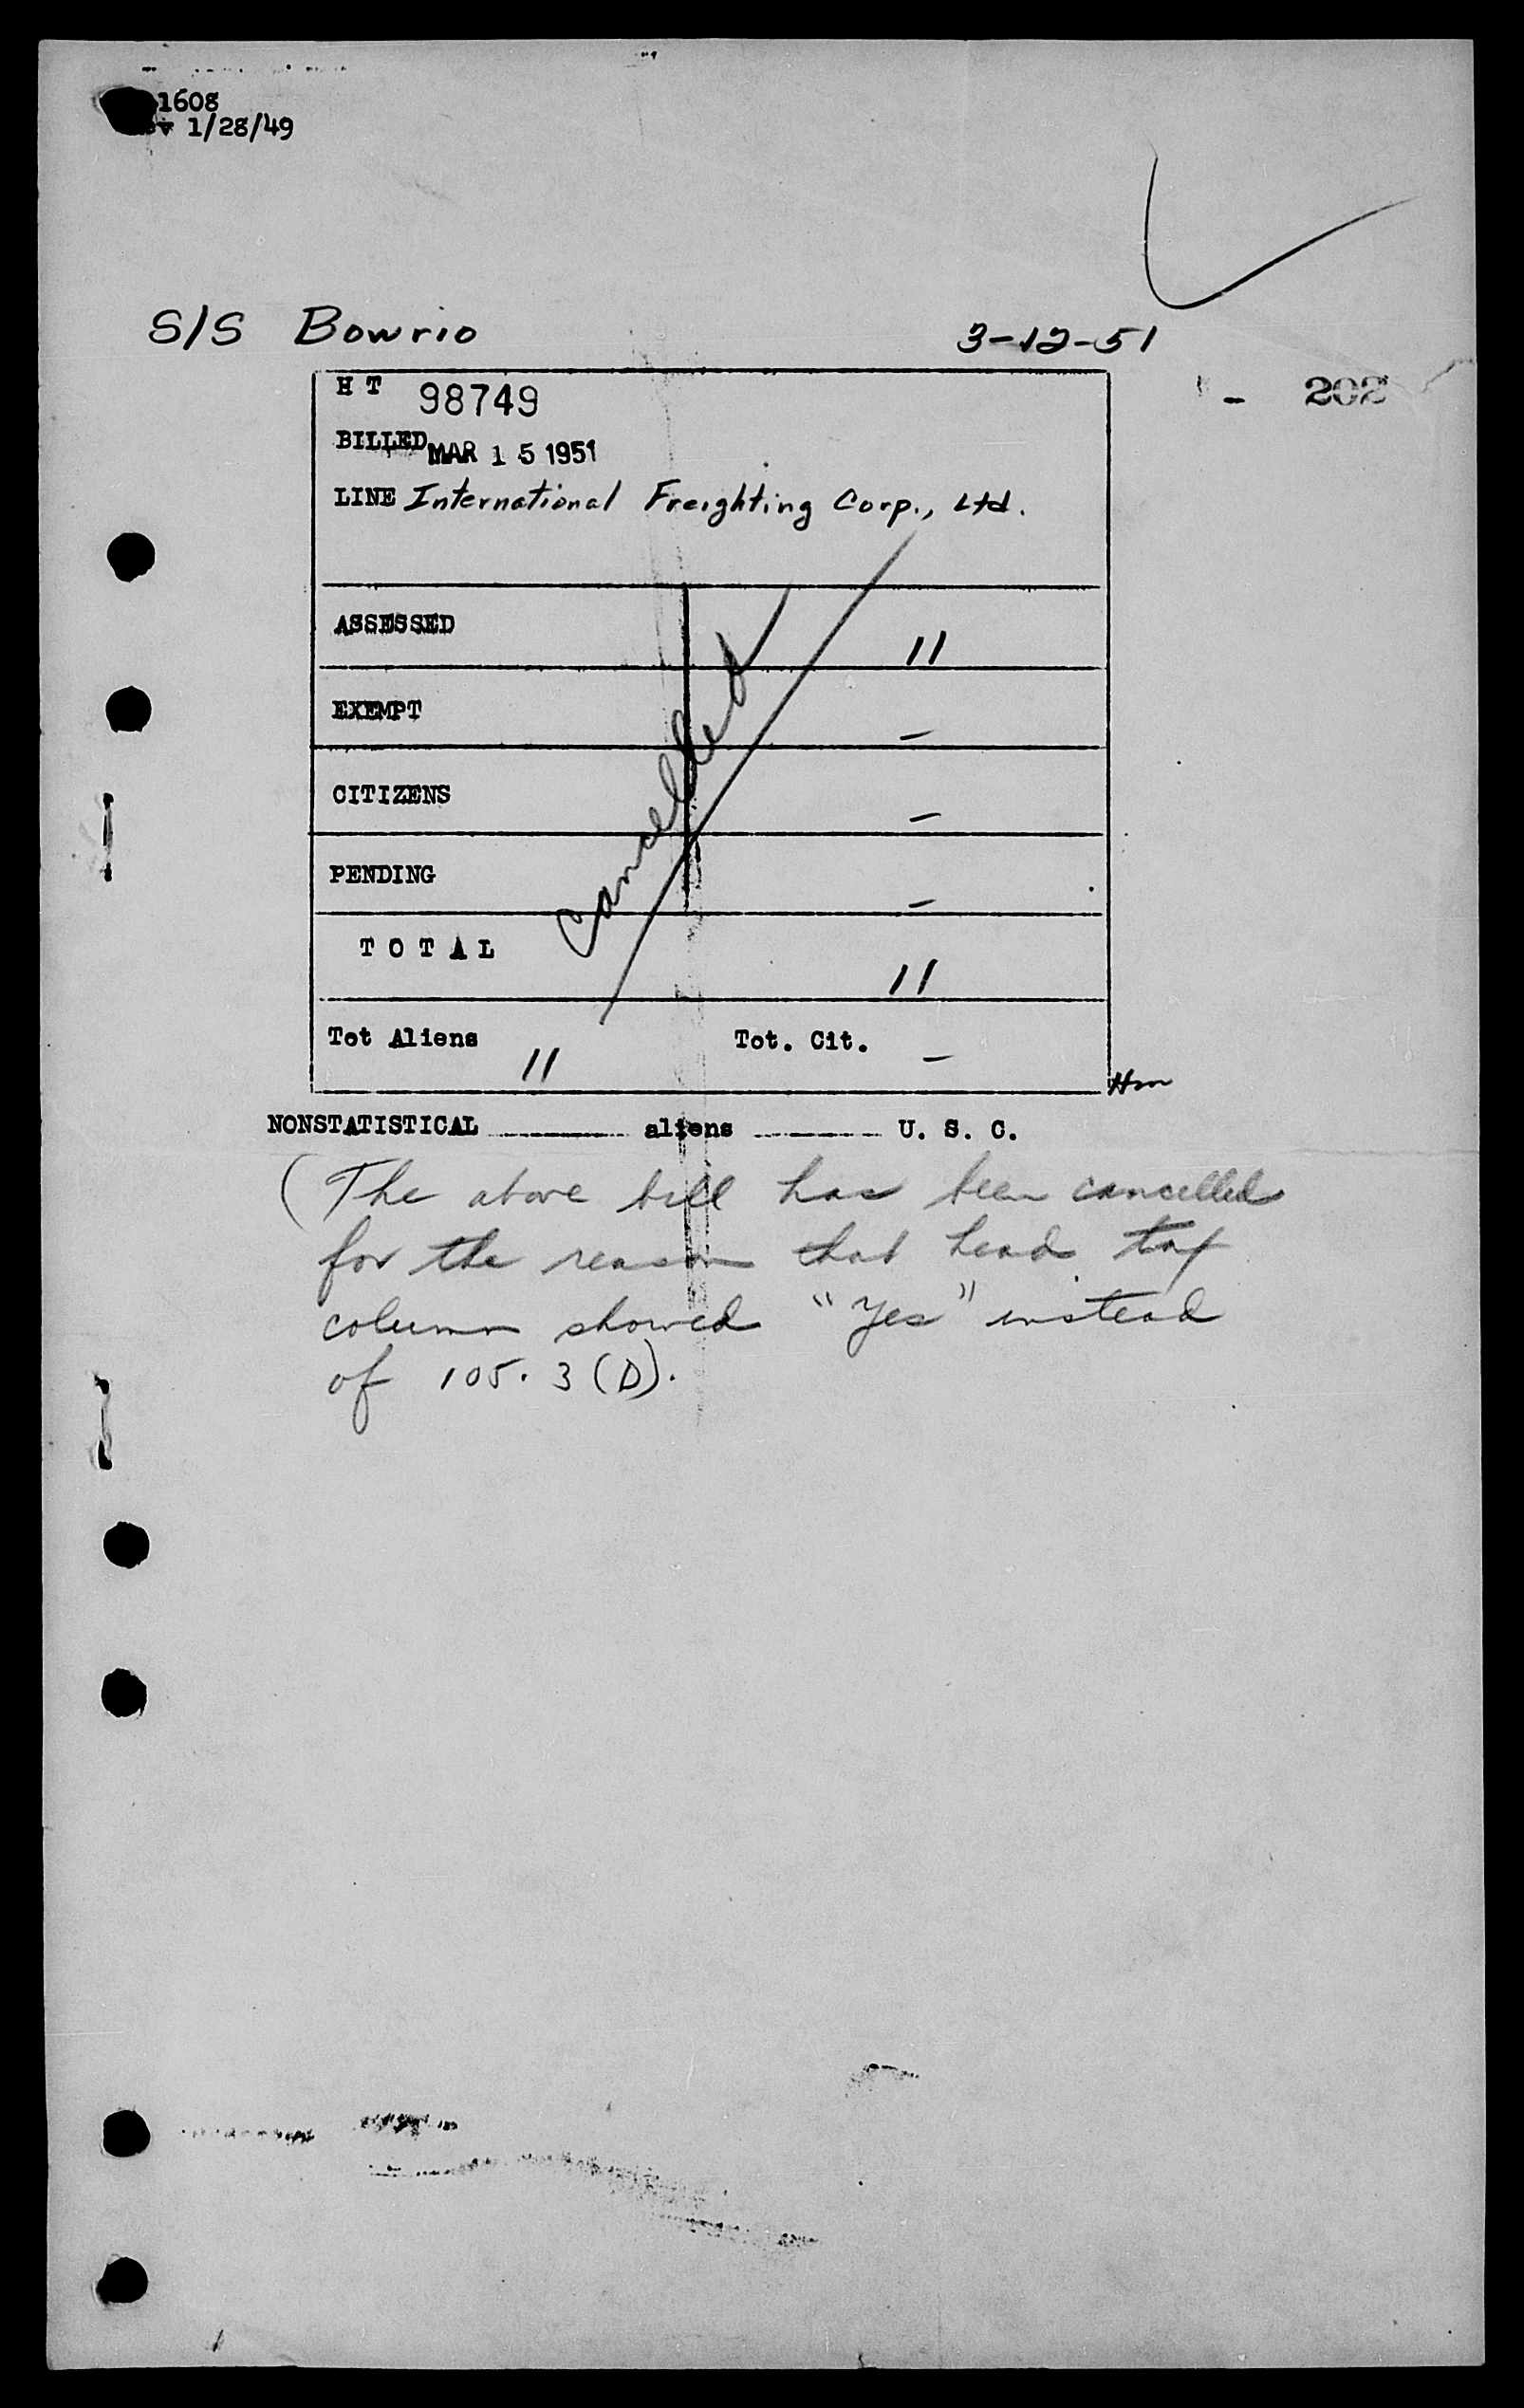 1608
1/28/49
S/S Bowrio 3-12-51
H T 98749 - 202
BILLED MAR 15 1951
LINE International Freighting Corp., Ltd.
ASSESSED 11
EXEMPT -
CITIZENS -
PENDING -
Cancelled
TOTAL 11
Tot Aliens 11 Tot. Cit. -
NONSTATISTICAL ---------- aliens ---------- U. S. C.
(The above bill has been cancelled
for the reason that head tax
column showed "Yes" instead
of 105.3 (D).